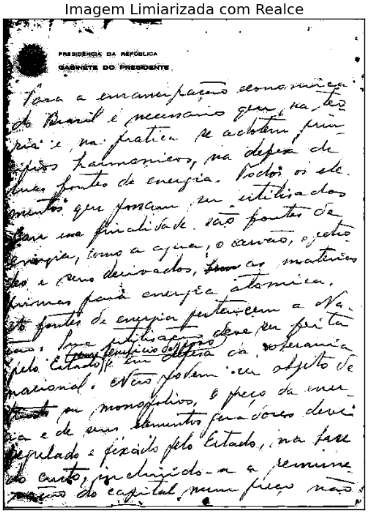 Imagem Limiarizada com Realce
PRESIDÊNCIA DA REPÚBLICA
GABINETE DO PRESIDENTE
Para a emancipação economica
do Brasil é necessario que, na teo-
ria e na pratica se adotem prin-
cipios harmonicos, na defesa de
suas fontes de energia. Todos os ele-
mentos que possam ser utilisados
com essa finalidade são fontes de
energia, como a agua, o carvão, o petro-
leo e seus derivados, as materias
primas para energia atomica.
fontes de energia pertencem a Na-
ção. Sua utilisação deve ser feita
pelo Estado, em defesa da soberania
nacional. Não podem ser objeto de
ou monopolios. O preço da ener-
gia e de seus elementos geradores deve
regulado e fixado pelo Estado, na base
do custo, incluindo-se a remune-
ração do capital, num preço não